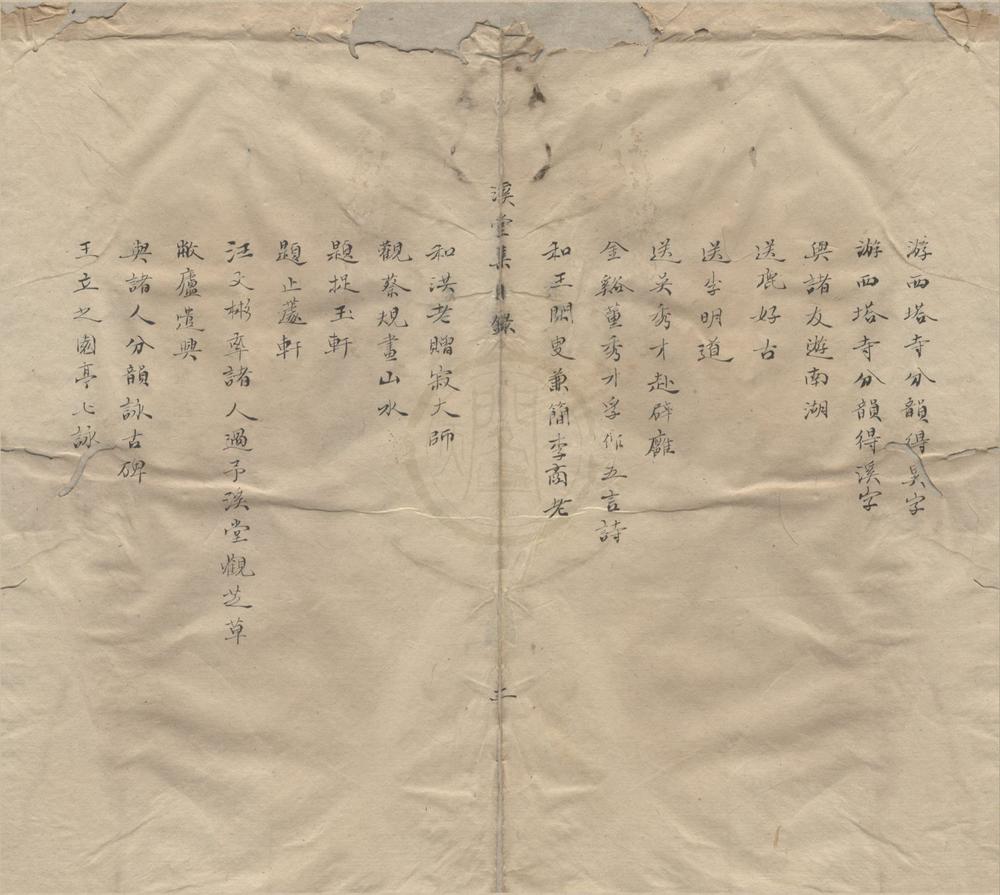 游西塔寺分韻得異字
游西塔寺分韻得溪字
與諸友遊南湖
送鹿好古
送李明道
送吴秀才赴辟廱
金谿董秀才孚作五言詩
和王閎叟兼簡李商老
溪堂集目錄
二
和洪老贈寂大師
觀蔡規畫山水
題捉玉軒
題止蘧軒
汪文彬率諸人過予溪堂觀芝草
敝廬遣興
與諸人分韻詠古碑
王立之園亭七詠